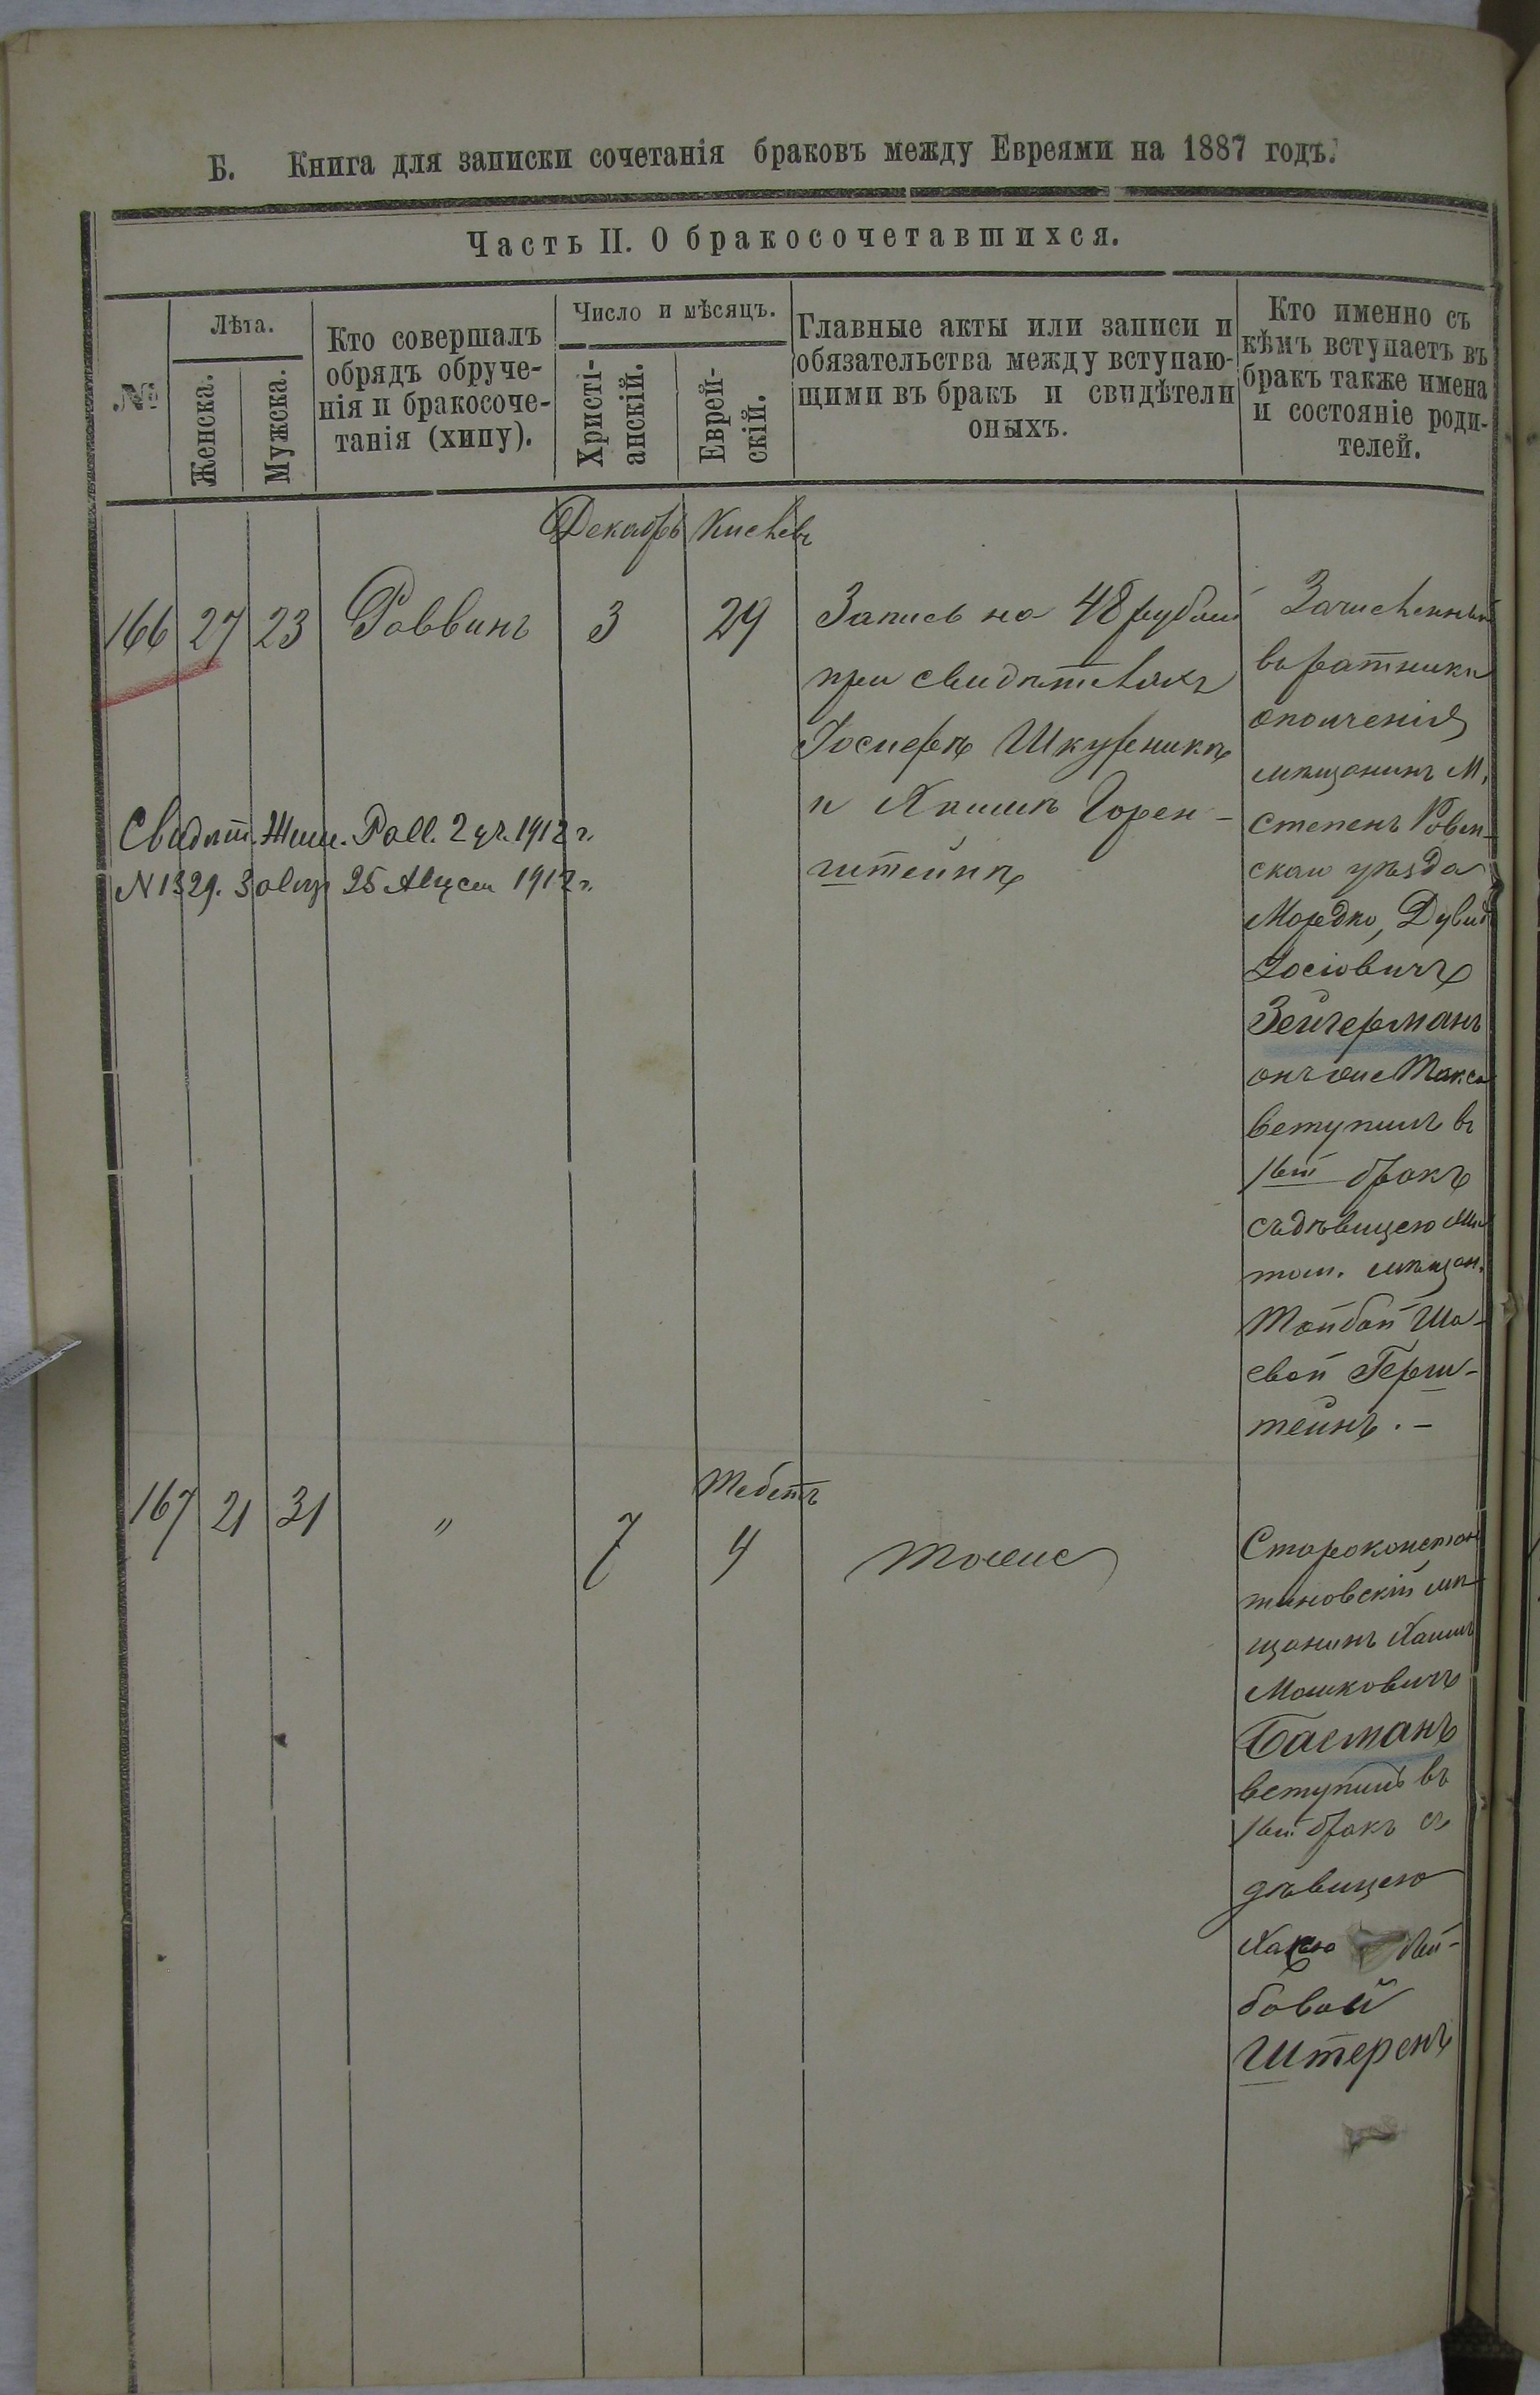 Б. Книга для записки сочетанія браковъ между Евреями на 1887 годъ.
Часть II. О бракосочетавшихся.
№
Лѣта.
Женска.
Мужска.
Кто совершалъ
обрядъ обруче-
нія и бракосоче-
танія (хипу).
Число и мѣсяцъ.
Христі-
анскій.
Еврей-
скій.
Главные акты или записи и
обязательства между вступаю-
щими въ бракъ и свидѣтели
оныхъ.
Кто именно съ
кѣмъ вступаетъ въ
бракъ также имена
и состояніе роди-
телей.
Декабрь Кислевъ
166 27 23 Раввинъ 3 29
Запись на 48 рублей
при свидѣтеляхъ
Іосифѣ Шкурникѣ
и Хаимѣ Горен-
штейнѣ
Зачисленный
въ ратники
ополченія
мѣщанинъ м.
Степень Ровен-
скаго уѣзда
Мордко, Дувид
Іосіовичъ
Зейгерманъ
онъ же Такса
вступилъ въ
1вый бракъ
съ дѣвицею Жи
том. мѣщан.
Тойбой Шо-
евой Герш-
тейнъ. -
Свидѣт. Жит. Рав. 2 уч. 1912 г.
N 1329. 25 Август 1912 г.
167 21 31 " 7
Тебетъ
4
тоже
Староконстан
тиновскій мѣ
щанинъ Хаимъ
Мошковичъ
Басманъ
вступилъ въ
1вый бракъ съ
дѣвицею
Хаею Лей-
бовой
Штеренъ